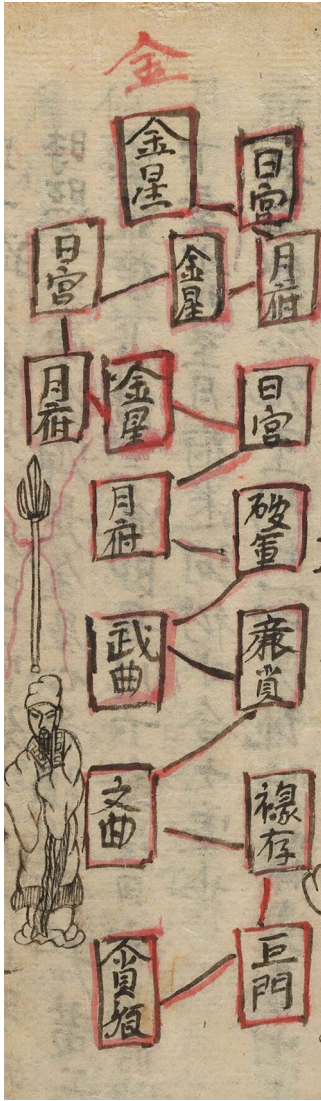 金
金星
日宮
日宮
金星
月府
月府
金星
日宮
月府
破軍
武曲
廉貞
文曲
祿存
巨門
貪狼